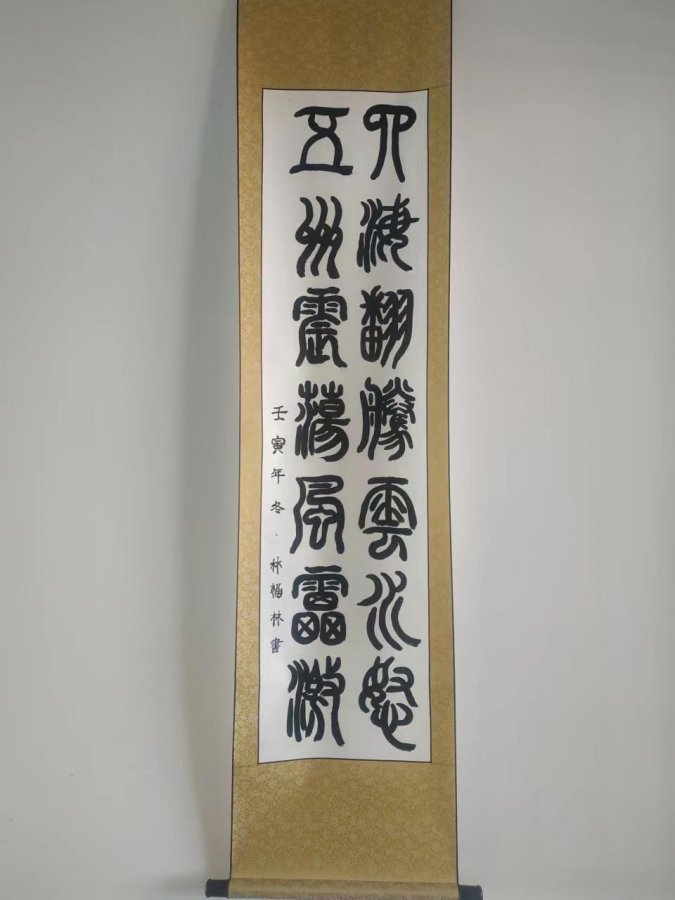 四海翻騰雲水怒
五州震蕩風雷激
壬寅年冬·林福林書